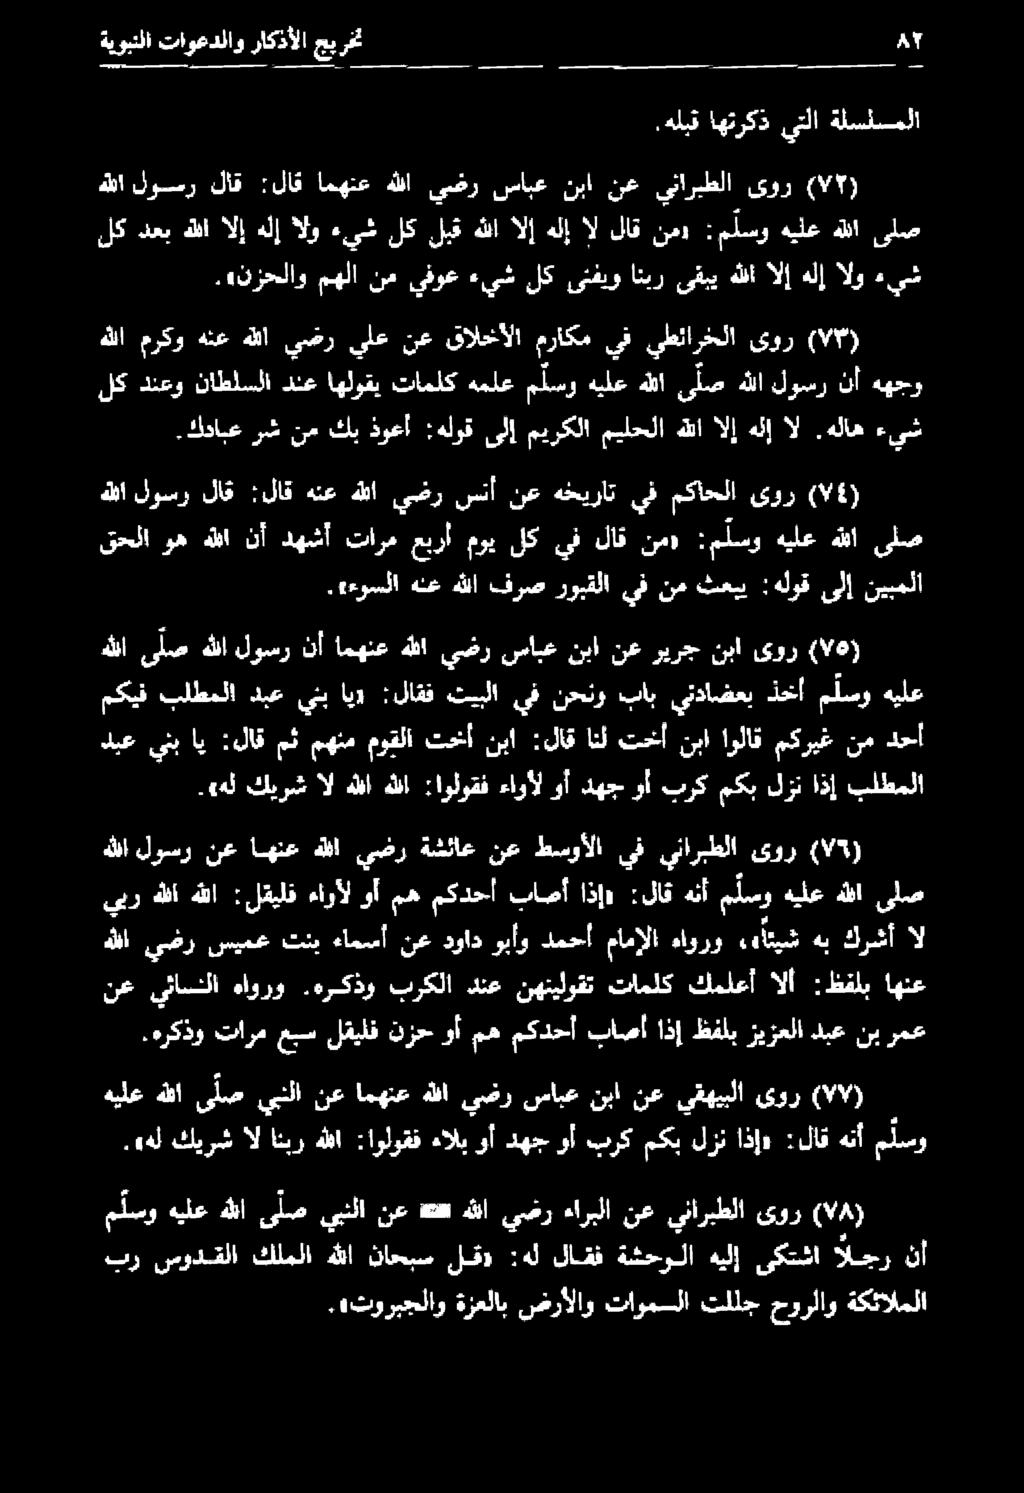 ٨٢
تخريج الأذكار والدعوات النبوية
المسلسلة التي ذكرتها قبله.
(٧٢) روى الطبراني عن ابن عباس رضي الله عنهما قال: قال رسول الله
صلى الله عليه وسلّم: «من قال لا إله إلا الله قبل كل شيء ولا إله إلا الله بعد كل
شيء ولا إله إلا الله يبقى ربنا ويفنى كل شيء عوفي من الهم والحزن».
(٧٣) روى الخرائطي في مكارم الأخلاق عن علي رضي الله عنه وكرم الله
وجهه أن رسول الله صلّى الله عليه وسلّم علمه كلمات يقولها عند السلطان وعند كل
شيء هاله. لا إله إلا الله الحليم الكريم إلى قوله: أعوذ بك من شر عبادك.
(٧٤) روى الحاكم في تاريخه عن أنس رضي الله عنه قال: قال رسول الله
صلى الله عليه وسلّم: «من قال في كل يوم أربع مرات أشهد أن الله هو الحق
المبين إلى قوله: يبعث من في القبور صرف الله عنه السوء».
(٧٥) روى ابن جرير عن ابن عباس رضي الله عنهما أن رسول الله صلّى الله
عليه وسلّم أخذ بعضادتي باب ونحن في البيت فقال: «يا بني عبد المطلب فيكم
أحد من غيركم قالوا ابن أخت لنا قال: ابن أخت القوم منهم ثم قال: يا بني عبد
المطلب إذا نزل بكم كرب أو جهد أو لأواء فقولوا: الله الله لا شريك له».
(٧٦) روى الطبراني في الأوسط عن عائشة رضي الله عنها عن رسول الله
صلى الله عليه وسلّم أنه قال: «إذا أصاب أحدكم هم أو لأواء فليقل: الله الله ربي
لا أشرك به شيئاً»، ورواه الإمام أحمد وأبو داود عن أسماء بنت عميس رضي الله
عنها بلفظ: ألا أعلمك كلمات تقولينهن عند الكرب وذكره. ورواه النسائي عن
عمر بن عبد العزيز بلفظ إذا أصاب أحدكم هم أو حزن فليقل سبع مرات وذكره.
(٧٧) روى البيهقي عن ابن عباس رضي الله عنهما عن النبي صلّى الله عليه
وسلّم أنه قال: «إذا نزل بكم كرب أو جهد أو بلاء فقولوا: الله ربنا لا شريك له».
(٧٨) روى الطبراني عن البراء رضي الله عن النبي صلّى الله عليه وسلّم
أن رجلاً اشتكى إليه الوحشة فقال له: «قل سبحان الله الملك القدوس رب
الملائكة والروح جللت السموات والأرض بالعزة والجبروت».